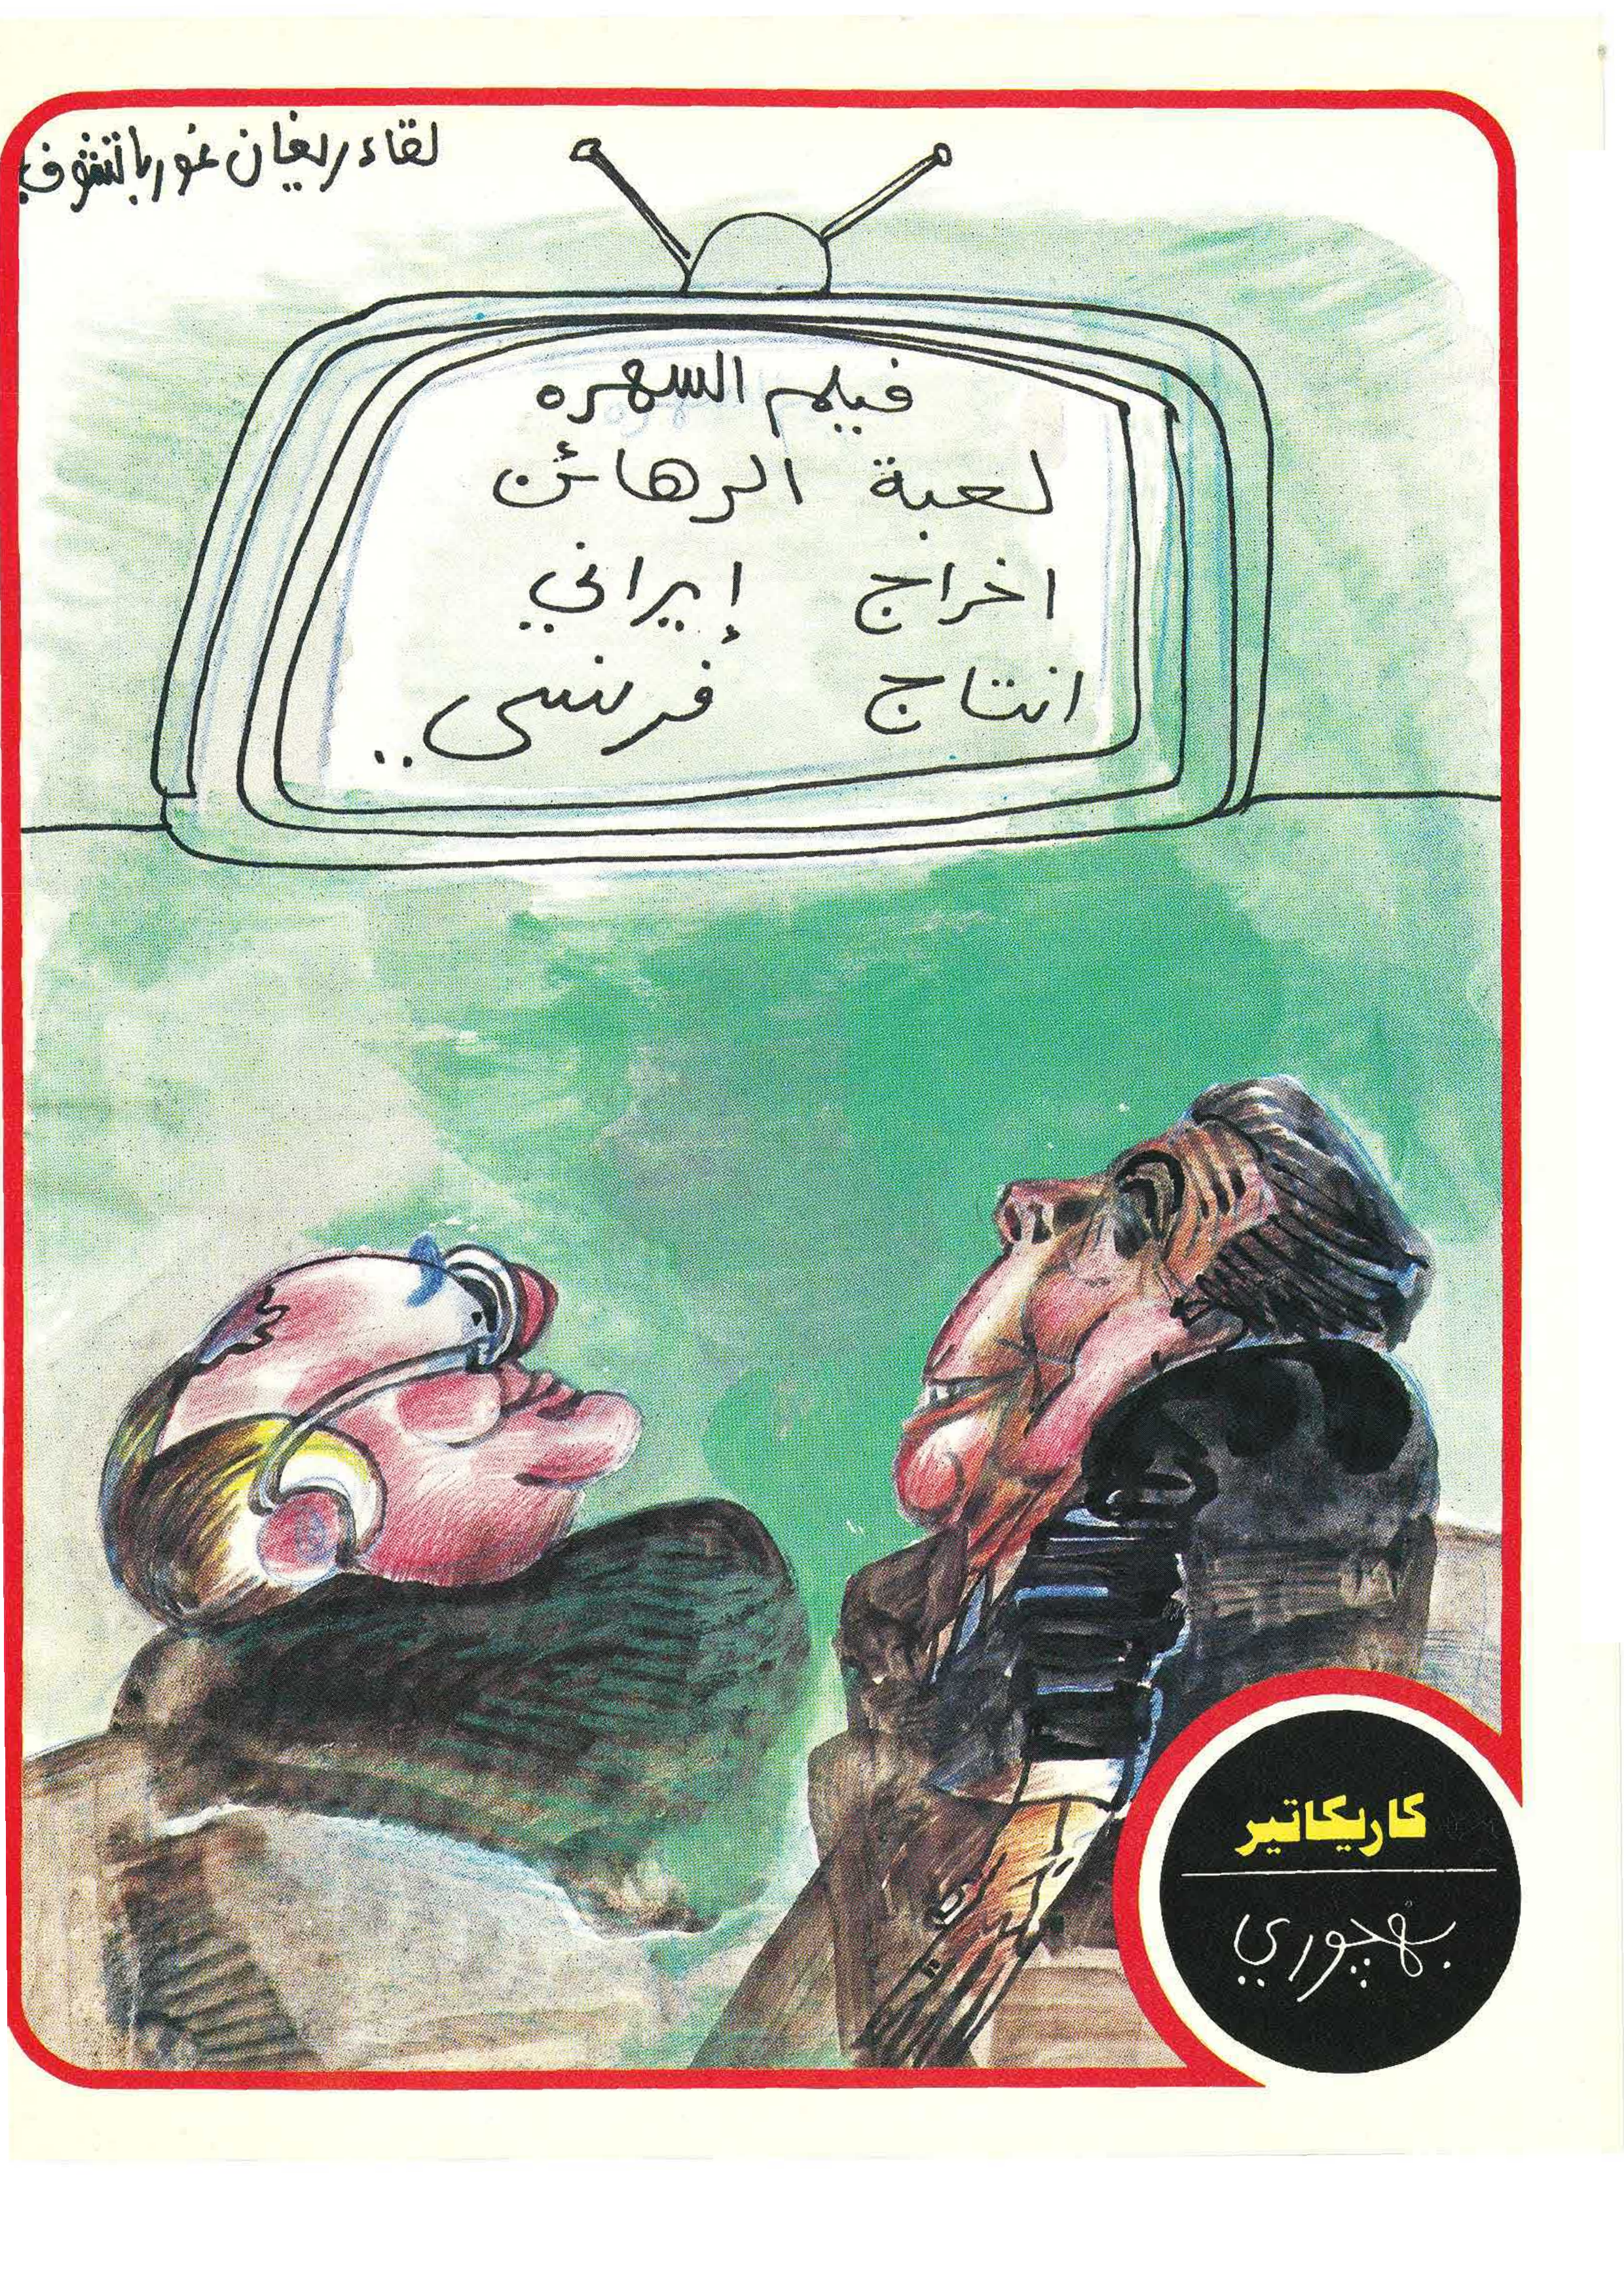 لقاء ريغان غورباتشوف
فيلم السهره
لعبة الرهائن
اخراج إيراني
انتاج فرنسى ..
كاريكاتير
بهچوري